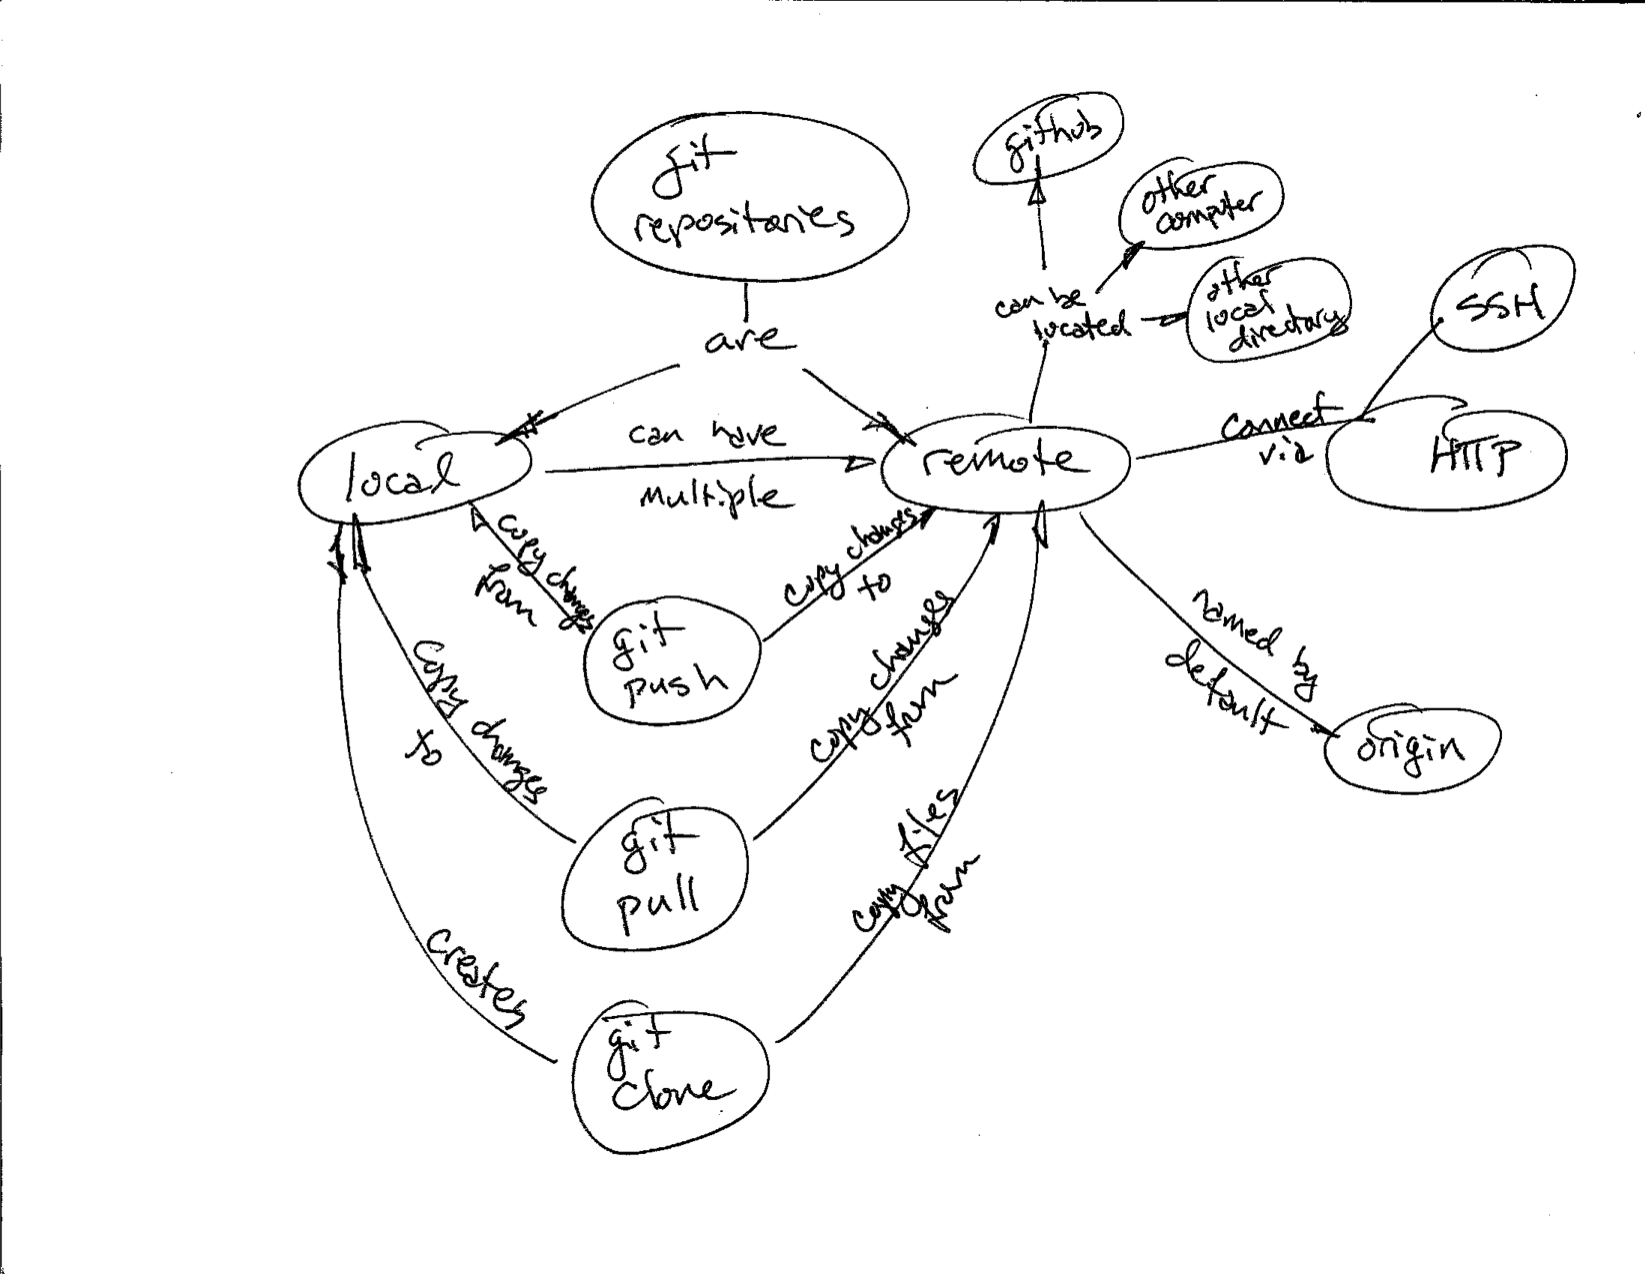 git
repositories
are
github
other
computer
can be
located
other
local
directory
SSH
connect
via
HTTP
local
can have
multiple
remote
copy changes
from
copy changes
to
git
push
named by
default
origin
copy changes
to
copy changes
from
git
pull
copy files
from
creates
git
clone